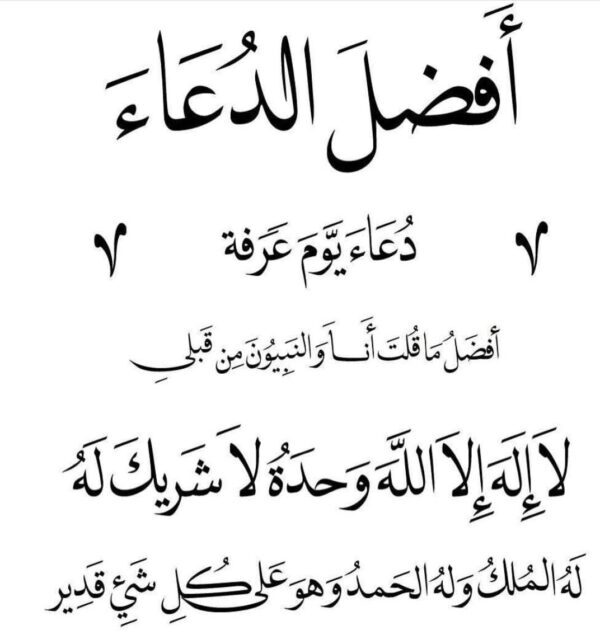 أَفضلَ الدُعَاءَ
دُعَاءَ يَّومَ عَرَفة
أفضَلُ مَا قُلتَ أَنَـا وَالنَبِيُونَ مِن قَبلي
لاَ إِلَهَ إِلاَ اللَّهَ وَحدَةُ لاَ شَريكَ لَهُ
لَهُ المُلكُ وَلهُ الحَمدُ وَهوَ عَلى كُلِ شَيْءٍ قَدِير